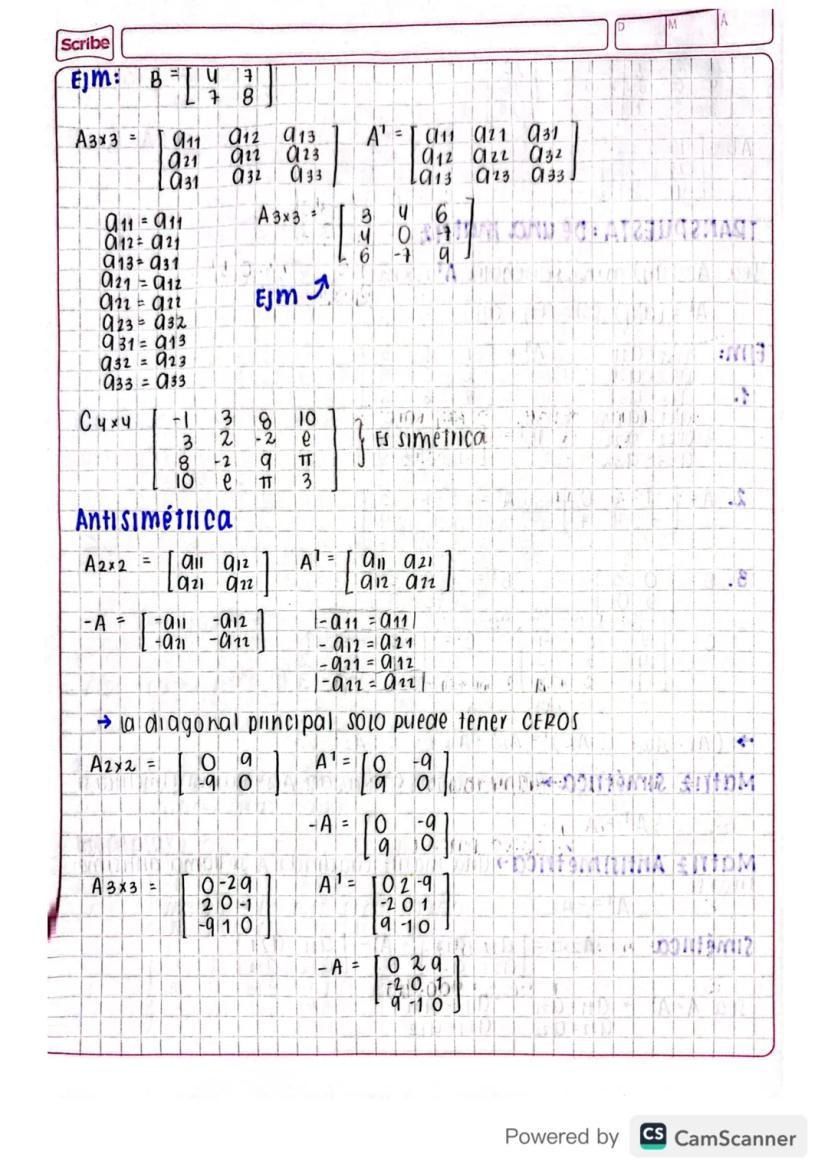 Scribe
D M A
Ejm: B = [ 4 7
7 8 ]
A3x3 = [ a11 a12 a13 A' = [ a11 a21 a31
a21 a22 a23 a12 a22 a32
a31 a32 a33 ] a13 a23 a33 ]
a11 = a11
a12 = a21
a13 = a31
a21 = a12
a22 = a22
a23 = a32
a31 = a13
a32 = a23
a33 = a33
A3x3 = [ 3 4 6
4 0 -7
6 -7 9 ]
Ejm
C4x4 [ -1 3 8 10
3 2 -2 e
8 -2 9 π
10 e π 3 ] } Es simétrica
Antisimétrica
A2x2 = [ a11 a12 A' = [ a11 a21
a21 a22 ] a12 a22 ]
-A = [ -a11 -a12
-a21 -a22 ]
|-a11 = a11|
-a12 = a21
-a21 = a12
|-a22 = a22|
→ la diagonal principal SOLO puede tener CEROS
A2x2 = [ 0 9 A' = [ 0 -9
-9 0 ] 9 0 ]
-A = [ 0 -9
9 0 ]
A3x3 = [ 0 -2 9 A' = [ 0 2 -9
2 0 -1 -2 0 1
-9 1 0 ] 9 -1 0 ]
-A = [ 0 2 9
-2 0 1
9 -1 0 ]
Powered by CS CamScanner